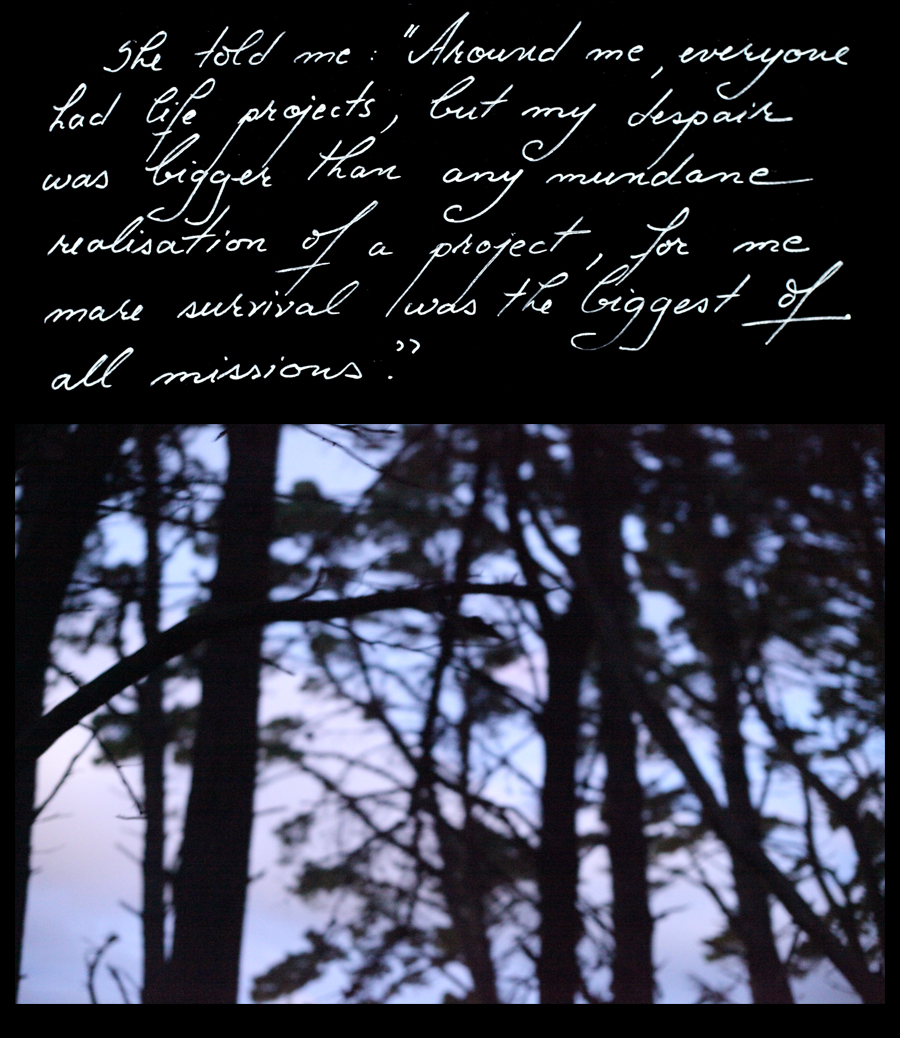 She told me : "Around me, everyone
had life projects, but my despair
was bigger than any mundane
realisation of a project, for me
mare survival was the biggest of
all missions."